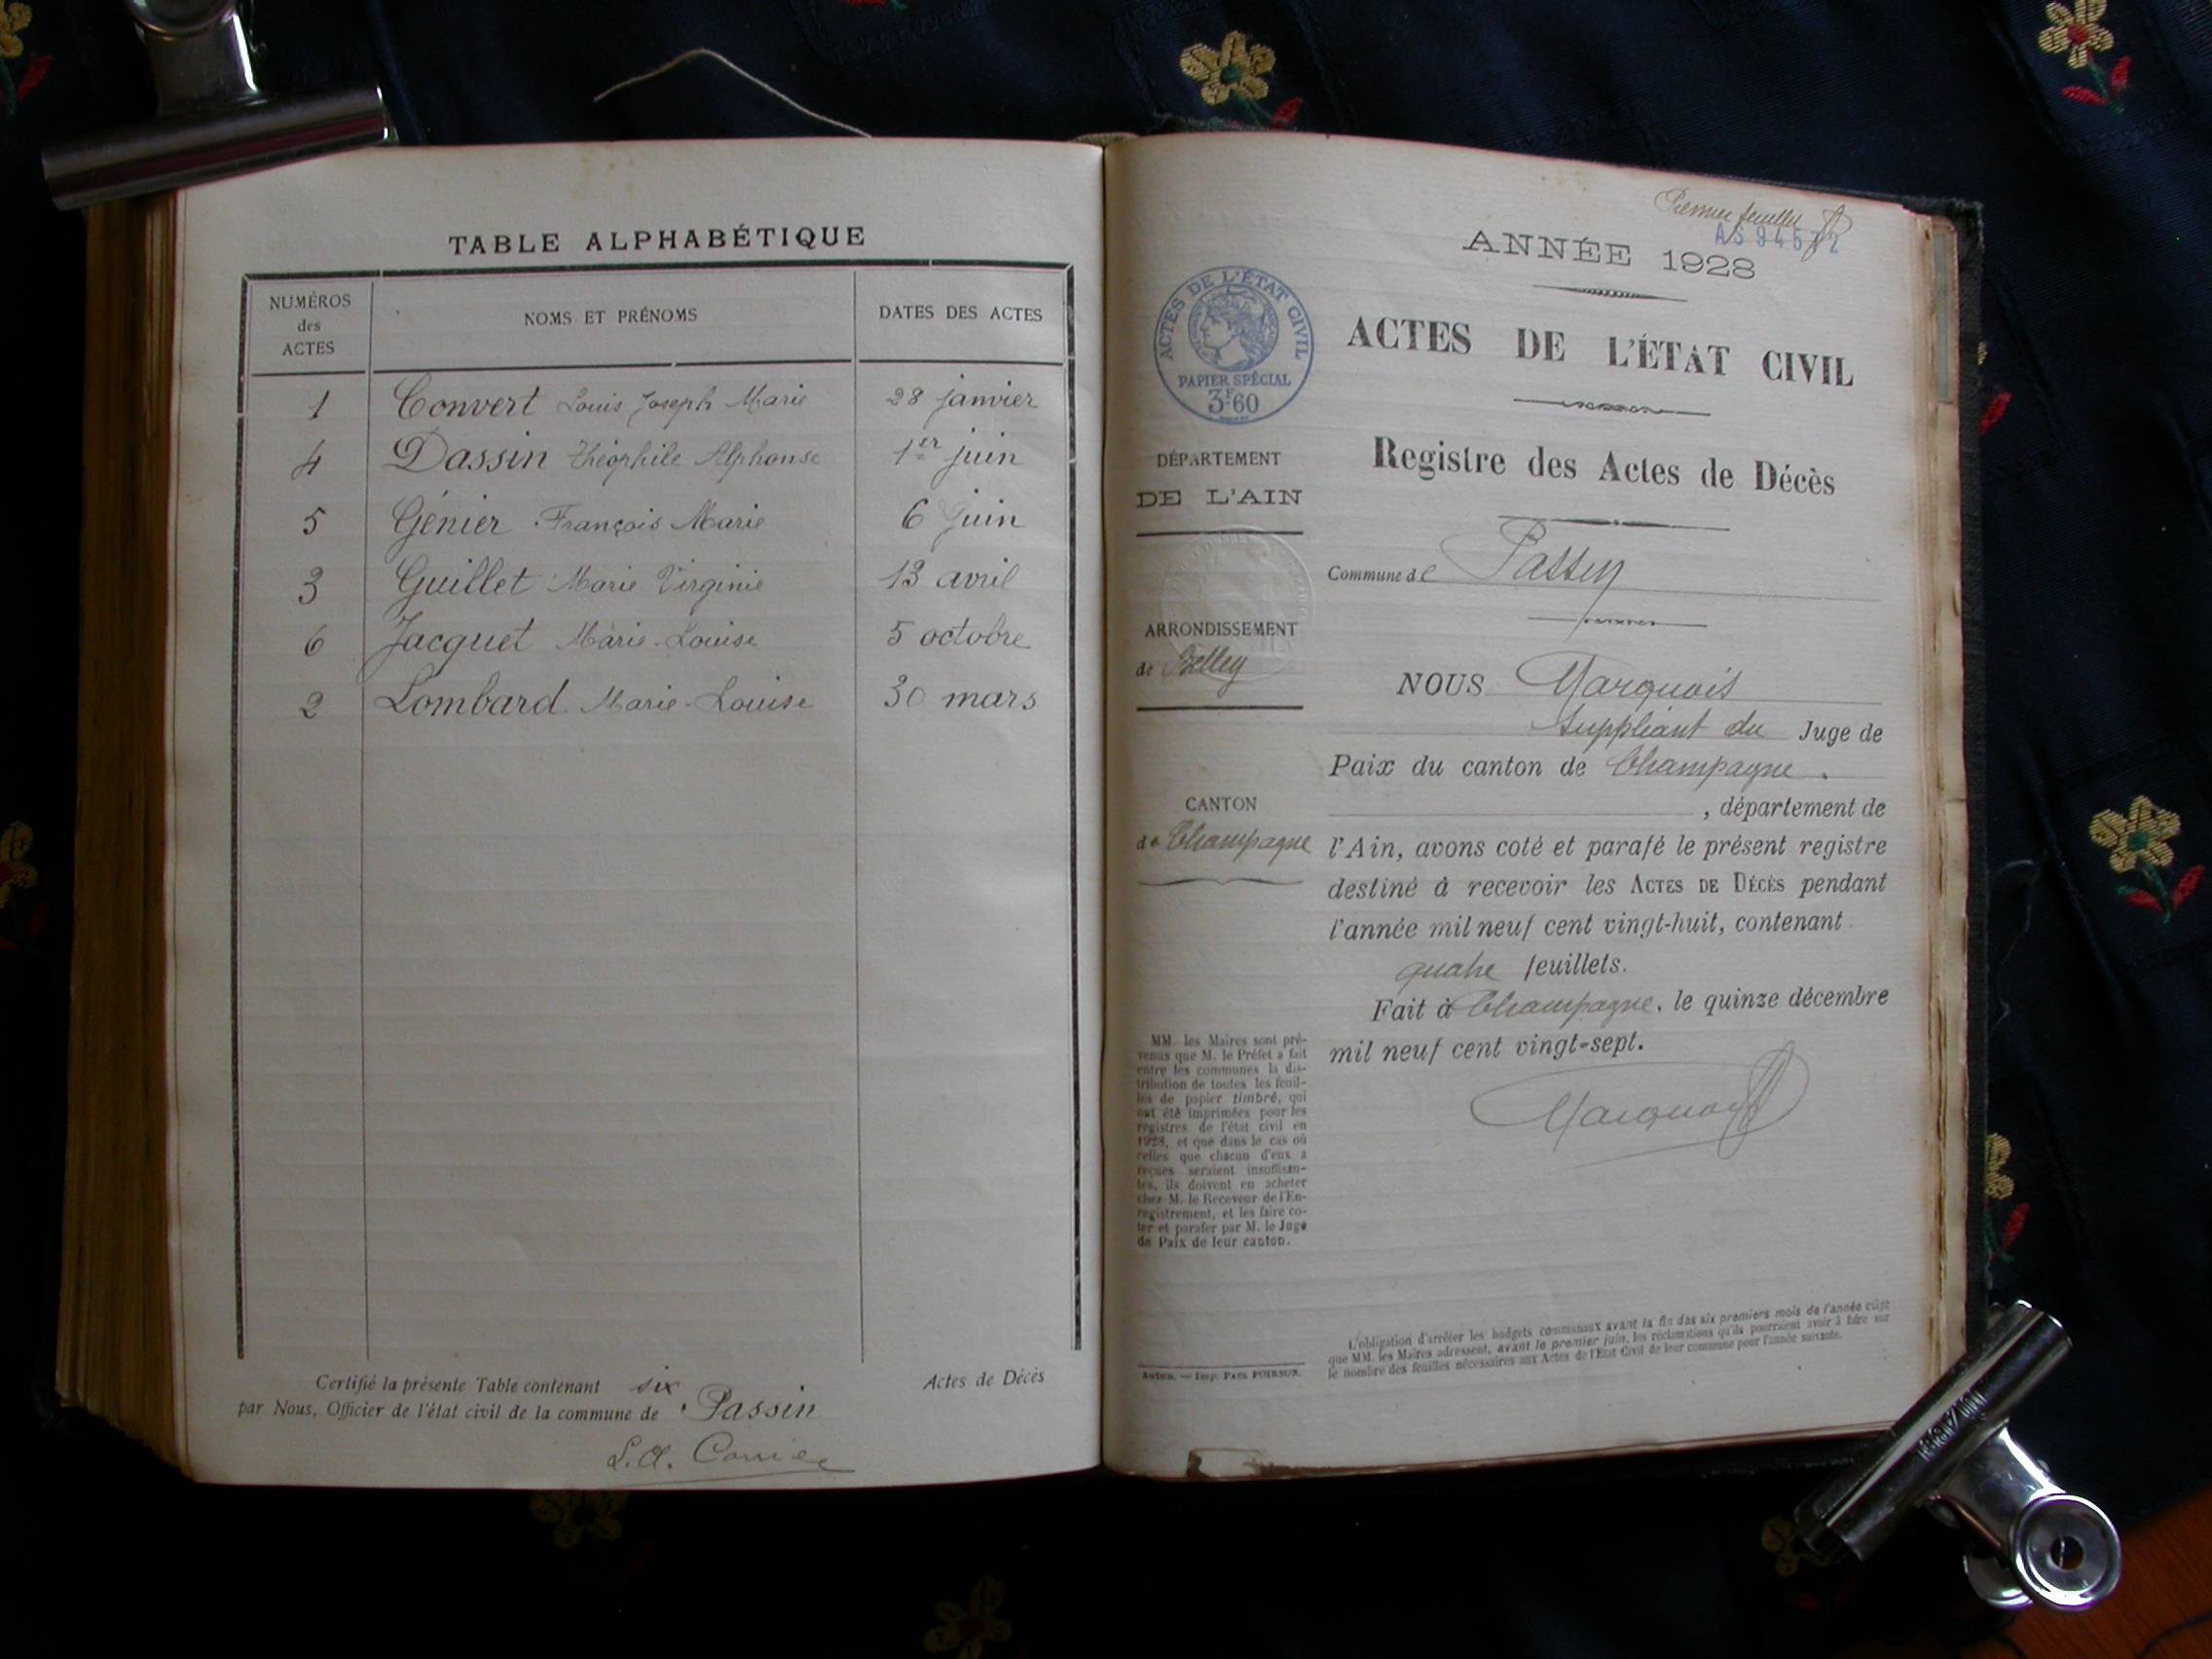 TABLE ALPHABÉTIQUE
NUMÉROS des ACTES NOMS ET PRÉNOMS DATES DES ACTES
1 Convert Louis Joseph Marie 28 janvier
4 Dassin Théophile Alphonse 1er juin
5 Génier François Marie 6 juin
3 Guillet Marie Virginie 13 avril
6 Jacquet Marie-Louise 5 octobre
2 Lombard Marie-Louise 30 mars
Certifié la présente Table contenant six Actes de Décès
par Nous, Officier de l'état civil de la commune de Passin
Premier feuillet
ANNÉE 1928
ACTES DE L'ÉTAT CIVIL
PAPIER SPÉCIAL
3F60
ACTES DE L'ÉTAT CIVIL
Registre des Actes de Décès
DÉPARTEMENT
DE L'AIN
ARRONDISSEMENT
de Belley
CANTON
de Champagne
MM. les Maires sont pré-
venus que M. le Préfet a fait
entre les communes la dis-
tribution de toutes les feuil-
les de papier timbré, qui
ont été imprimées pour les
registres de l'état civil en
1928, et que dans le cas où
celles que chacun d'eux a
reçues seraient insuffisan-
tes, ils doivent en acheter
chez M. le Receveur de l'En-
registrement, et les faire co-
ter et parafer par M. le Juge
de Paix de leur canton.
Autun. — Imp. PAUL POIRSON.
Commune de Passin
NOUS Marquois
Suppléant du Juge de
Paix du canton de Champagne.
, département de
l'Ain, avons coté et parafé le présent registre
destiné à recevoir les ACTES DE DÉCÈS pendant
l'année mil neuf cent vingt-huit, contenant
quatre feuillets.
Fait à Champagne, le quinze décembre
mil neuf cent vingt-sept.
Marquois
L'obligation d'arrêter les budgets communaux avant la fin des six premiers mois de l'année exige
que MM. les Maires adressent, avant le premier juin, les réclamations qu'ils pourraient avoir à faire sur
le nombre des feuilles nécessaires aux Actes de l'État Civil de leur commune pour l'année suivante.